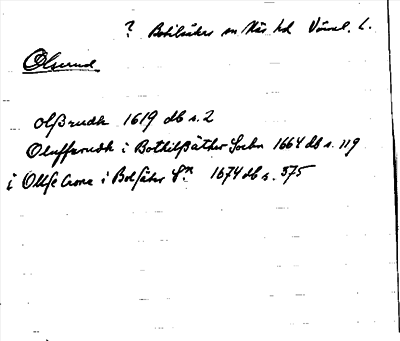 ? Botilsäter sn Näs hd Värml. l.
Olsrud
olßrudh 1619 db s. 2
Oluffzrudh i Bothilßäther Sochn 1664 db s. 119
i Ollße Crona i Botsäter Sn 1674 db s. 575